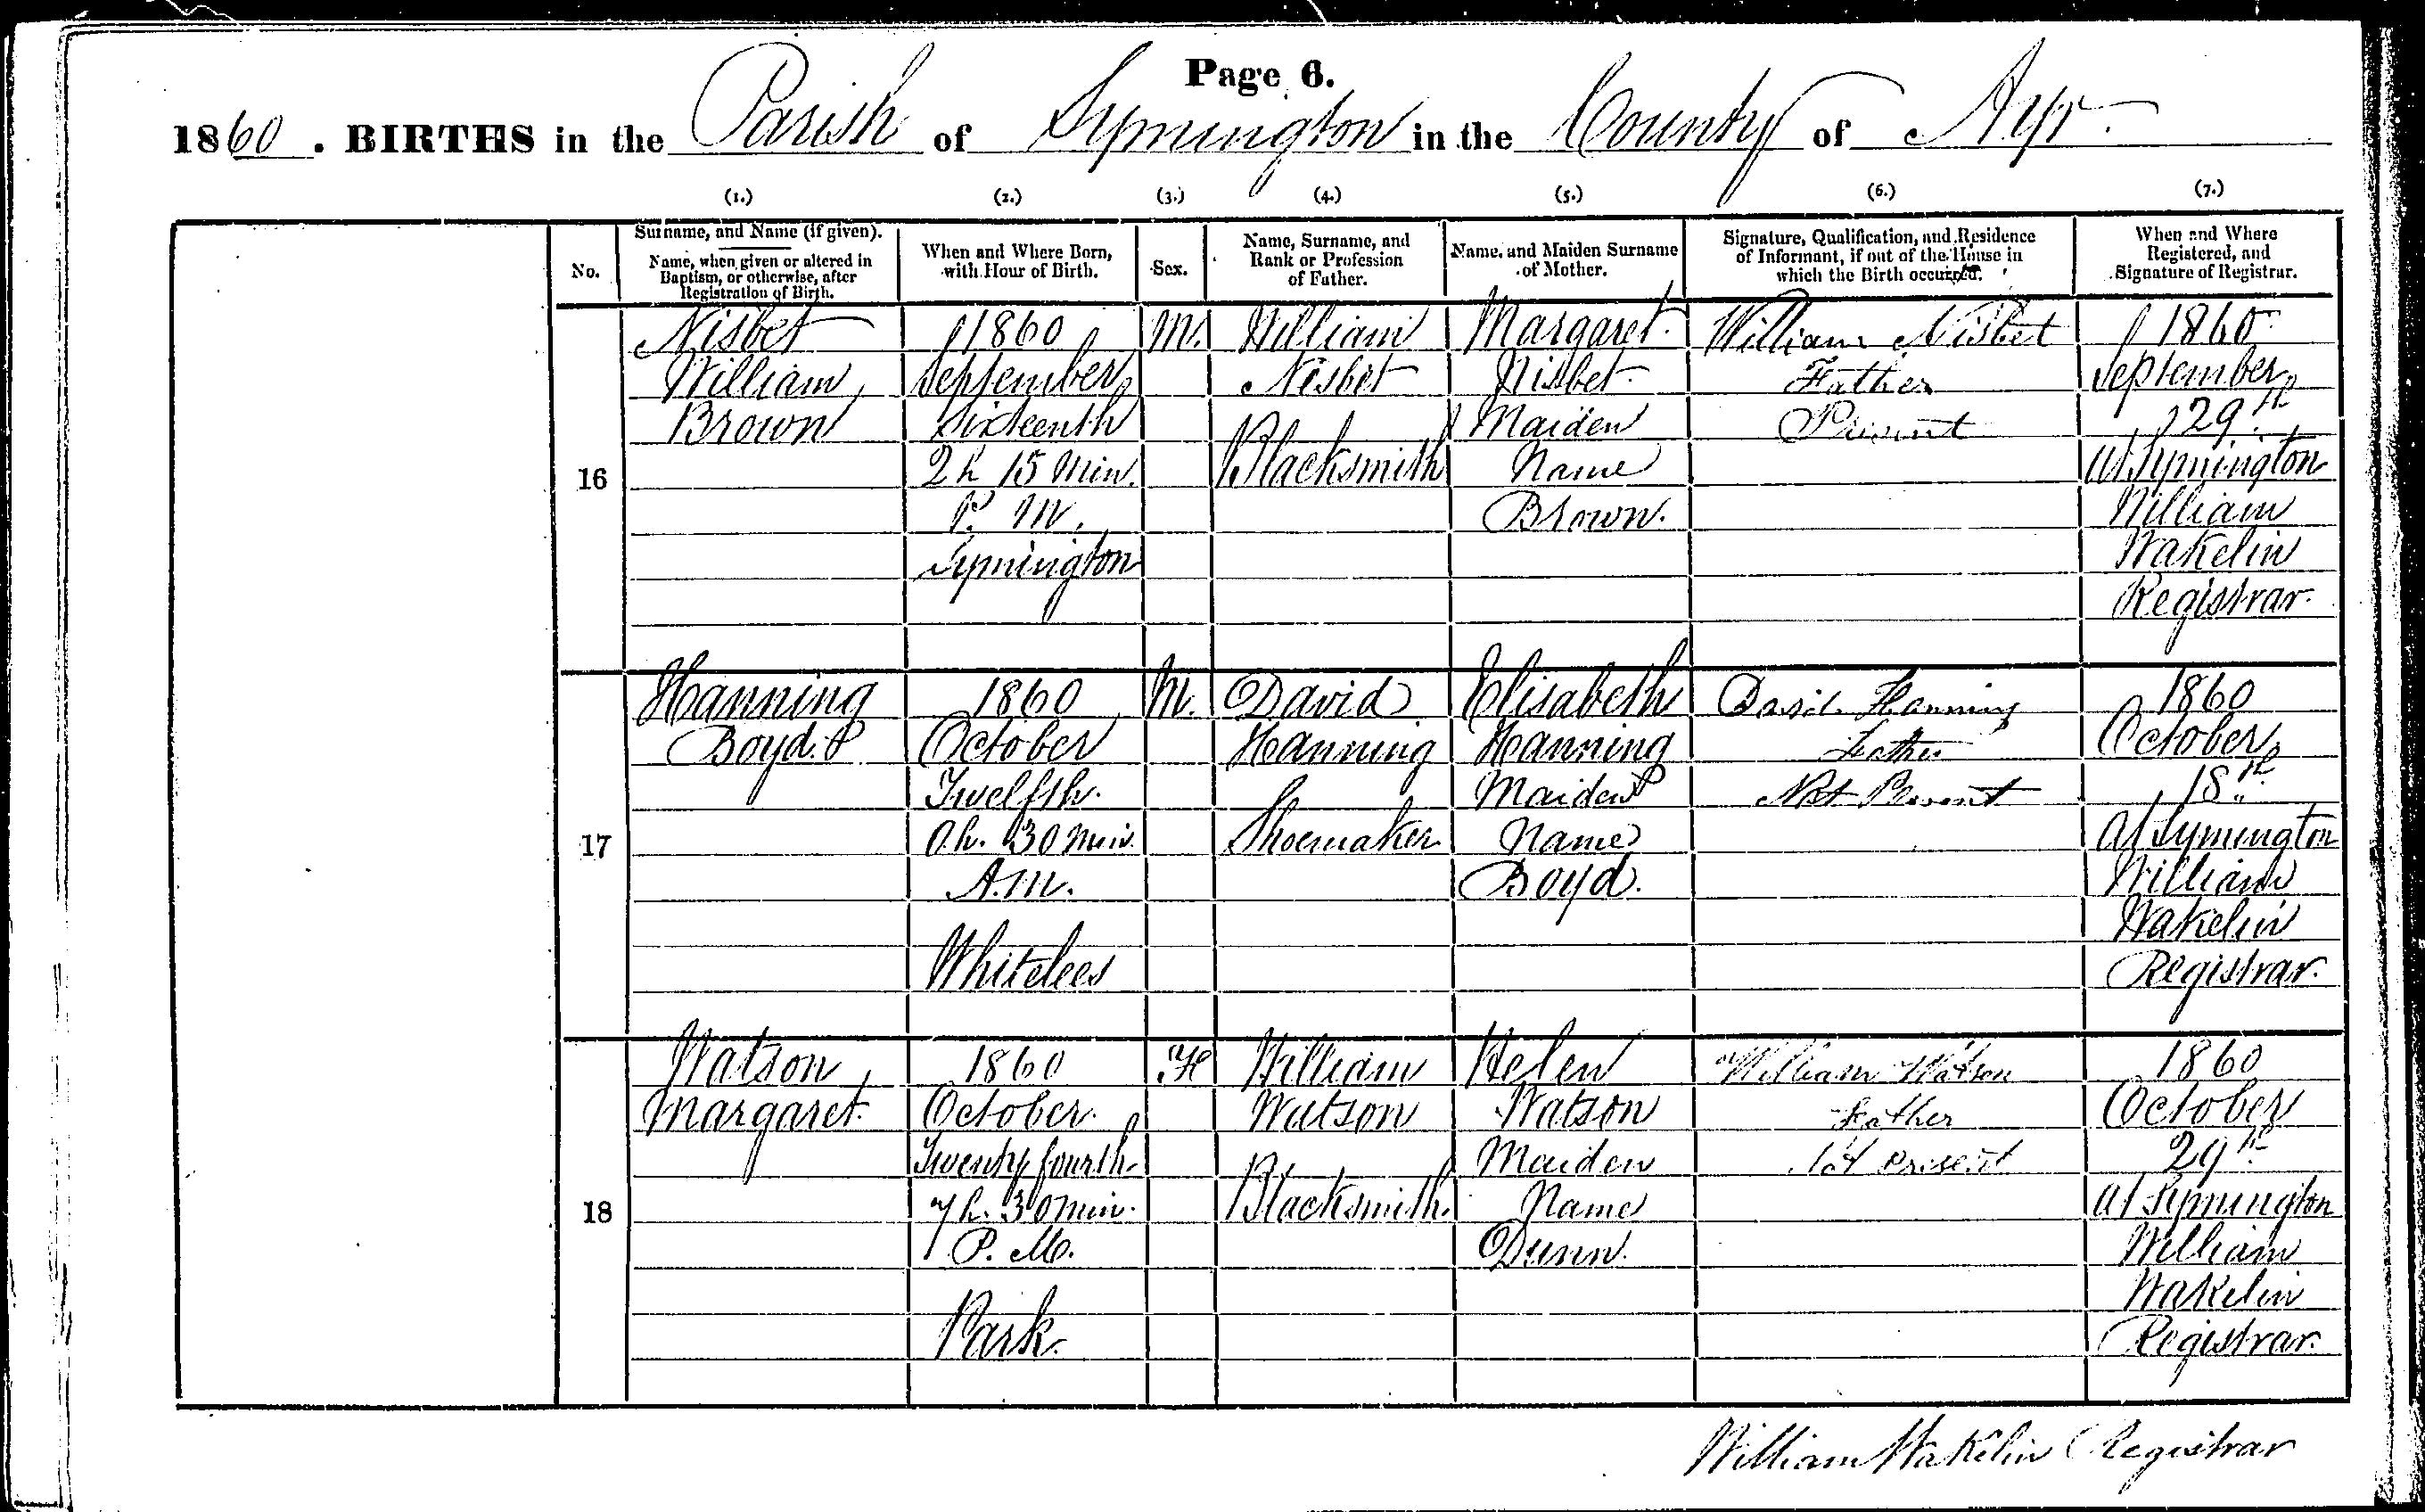 Page 6.
1860. BIRTHS in the Parish of Symington in the County of Ayr.
(1.) (2.) (3.) (4.) (5.) (6.) (7.)
No.
Surname, and Name (if given).
Name, when given or altered in
Baptism, or otherwise, after
Registration of Birth.
When and Where Born,
with Hour of Birth.
Sex.
Name, Surname, and
Rank or Profession
of Father.
Name, and Maiden Surname
of Mother.
Signature, Qualification, and Residence
of Informant, if out of the House in
which the Birth occurred.
When and Where
Registered, and
Signature of Registrar.
16
Nisbet
William
Brown
1860
September
Sixteenth
2 h 15 Min.
P. M.
Symington
M.
William
Nisbet
Blacksmith
Margaret
Nisbet
Maiden
Name
Brown.
William Nisbet
Father
Present
1860
September
29th
At Symington
William
Wakelin
Registrar.
17
Hanning
Boyd
1860
October
Twelfth.
0h. 30 Min.
A.M.
Whitelees
M.
David
Hanning
Shoemaker
Elisabeth
Hanning
Maiden
Name
Boyd.
David Hanning
Father
Not Present
1860
October
18th
At Symington
William
Wakelin
Registrar.
18
Watson
Margaret.
1860
October.
Twenty fourth.
7h. 30 Min.
P. M.
Park.
F
William
Watson
Blacksmith.
Helen
Watson
Maiden
Name
Dunn.
William Watson
Father
Not present
1860
October
29th
At Symington
William
Wakelin
Registrar.
William Wakelin Registrar